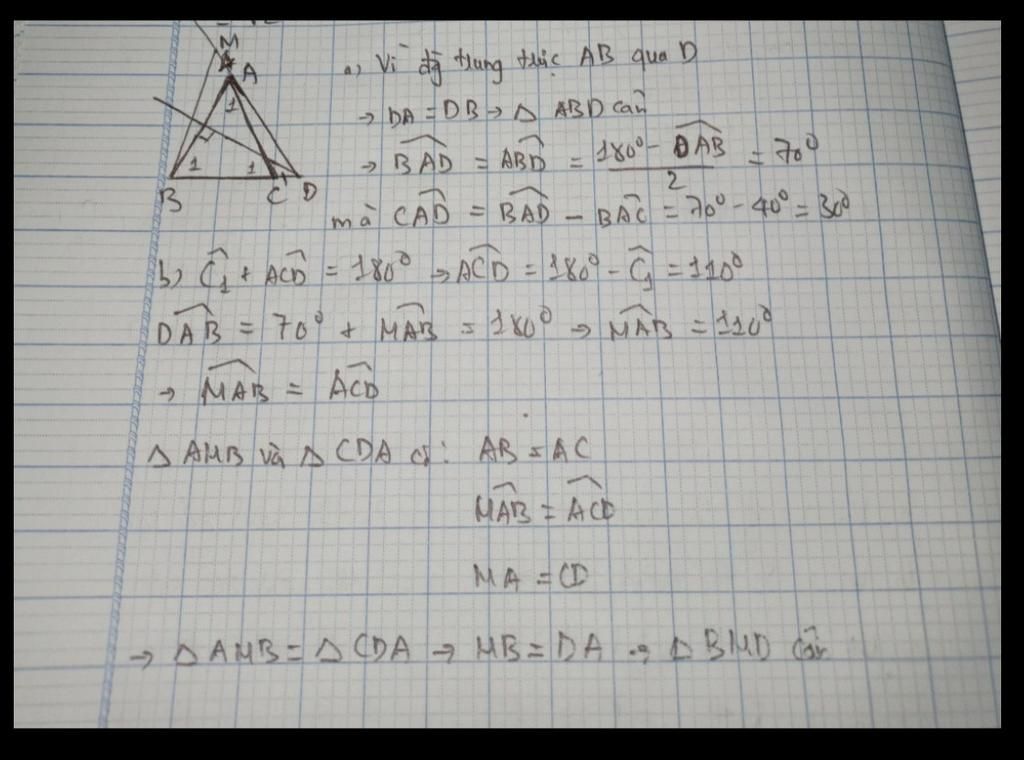 M
A
1
1 1
B C D
a, Vì đg trung trực AB qua D
→ DA = DB → Δ ABD cân
→ \widehat{BAD} = \widehat{ABD} = \frac{180° - \widehat{DAB}}{2} = 70°
mà \widehat{CAD} = \widehat{BAD} - \widehat{BAC} = 70° - 40° = 30°
b) \widehat{C_1} + \widehat{ACD} = 180° → \widehat{ACD} = 180° - \widehat{C_1} = 110°
\widehat{DAB} = 70° + \widehat{MAB} = 180° → \widehat{MAB} = 110°
→ \widehat{MAB} = \widehat{ACD}
Δ AMB và Δ CDA có: AB = AC
\widehat{MAB} = \widehat{ACD}
MA = CD
→ Δ AMB = Δ CDA → MB = DA → Δ BMD cân